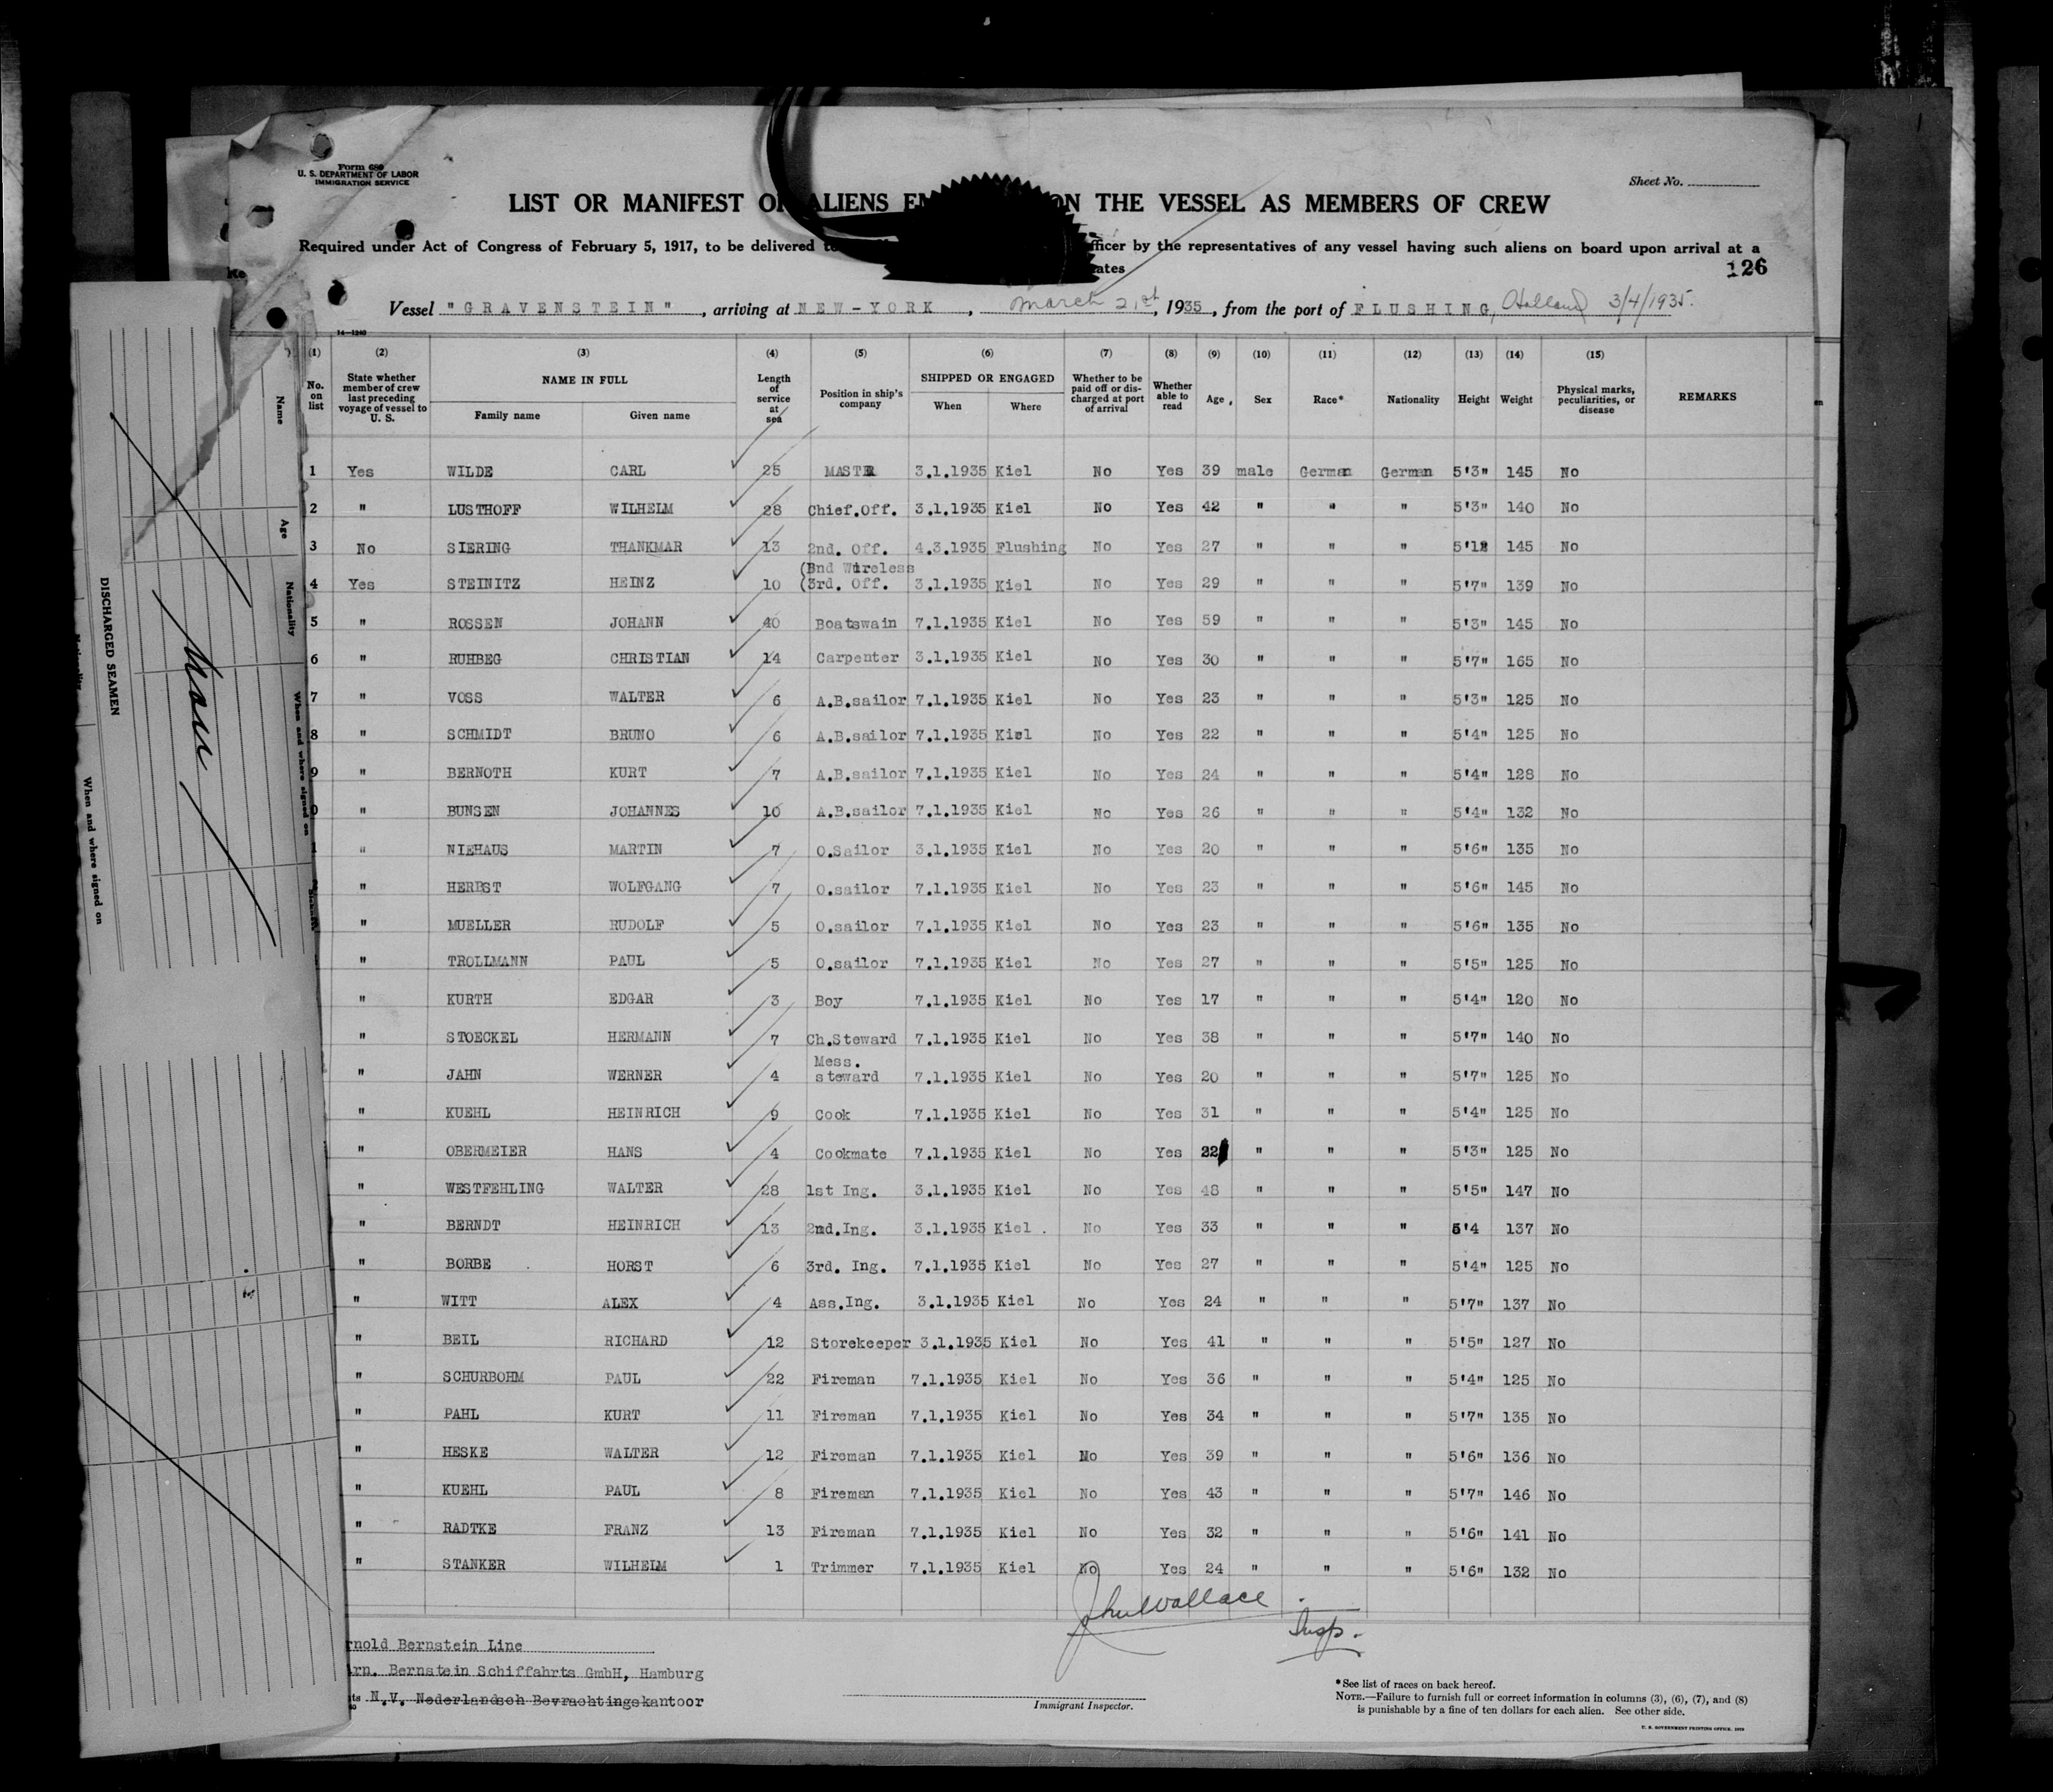 Form 680
U. S. DEPARTMENT OF LABOR
IMMIGRATION SERVICE
Sheet No.
LIST OR MANIFEST OF ALIENS ON THE VESSEL AS MEMBERS OF CREW
Required under Act of Congress of February 5, 1917, to be delivered officer by the representatives of any vessel having such aliens on board upon arrival at a
126
Vessel "GRAVENSTEIN", arriving at NEW-YORK, March 21st, 1935, from the port of FLUSHING, Holland 3/4/1935.
14—1240
(1) (2) (3) (4) (5) (6) (7) (8) (9) (10) (11) (12) (13) (14) (15)
No. on list State whether member of crew last preceding voyage of vessel to U. S. NAME IN FULL Family name Given name Length of service at sea Position in ship's company SHIPPED OR ENGAGED When Where Whether to be paid off or discharged at port of arrival Whether able to read Age Sex Race* Nationality Height Weight Physical marks, peculiarities, or disease REMARKS
1 Yes WILDE CARL 25 MASTER 3.1.1935 Kiel No Yes 39 male German German 5'3" 145 No
2 " LUSTHOFF WILHELM 28 Chief.Off. 3.1.1935 Kiel No Yes 42 " " " 5'3" 140 No
3 No SIERING THANKMAR 13 2nd. Off. 4.3.1935 Flushing No Yes 27 " " " 5'12 145 No
4 Yes STEINITZ HEINZ 10 (2nd Wireless (3rd. Off. 3.1.1935 Kiel No Yes 29 " " " 5'7" 139 No
5 " ROSSEN JOHANN 40 Boatswain 7.1.1935 Kiel No Yes 59 " " " 5'3" 145 No
6 " RUHBEG CHRISTIAN 14 Carpenter 3.1.1935 Kiel No Yes 30 " " " 5'7" 165 No
7 " VOSS WALTER 6 A.B.sailor 7.1.1935 Kiel No Yes 23 " " " 5'3" 125 No
8 " SCHMIDT BRUNO 6 A.B.sailor 7.1.1935 Kiel No Yes 22 " " " 5'4" 125 No
9 " BERNOTH KURT 7 A.B.sailor 7.1.1935 Kiel No Yes 24 " " " 5'4" 128 No
0 " BUNSEN JOHANNES 10 A.B.sailor 7.1.1935 Kiel No Yes 26 " " " 5'4" 132 No
" NIEHAUS MARTIN 7 O.Sailor 3.1.1935 Kiel No Yes 20 " " " 5'6" 135 No
" HERBST WOLFGANG 7 O.sailor 7.1.1935 Kiel No Yes 23 " " " 5'6" 145 No
" MUELLER RUDOLF 5 O.sailor 7.1.1935 Kiel No Yes 23 " " " 5'6" 135 No
" TROLLMANN PAUL 5 O.sailor 7.1.1935 Kiel No Yes 27 " " " 5'5" 125 No
" KURTH EDGAR 3 Boy 7.1.1935 Kiel No Yes 17 " " " 5'4" 120 No
" STOECKEL HERMANN 7 Ch.Steward 7.1.1935 Kiel No Yes 38 " " " 5'7" 140 No
" JAHN WERNER 4 Mess. steward 7.1.1935 Kiel No Yes 20 " " " 5'7" 125 No
" KUEHL HEINRICH 9 Cook 7.1.1935 Kiel No Yes 31 " " " 5'4" 125 No
" OBERMEIER HANS 4 Cookmate 7.1.1935 Kiel No Yes 22 " " " 5'3" 125 No
" WESTFEHLING WALTER 28 1st Ing. 3.1.1935 Kiel No Yes 48 " " " 5'5" 147 No
" BERNDT HEINRICH 13 2nd.Ing. 3.1.1935 Kiel . No Yes 33 " " " 5'4 137 No
" BORBE HORST 6 3rd. Ing. 7.1.1935 Kiel No Yes 27 " " " 5'4" 125 No
" WITT ALEX 4 Ass.Ing. 3.1.1935 Kiel No Yes 24 " " " 5'7" 137 No
" BEIL RICHARD 12 Storekeeper 3.1.1935 Kiel No Yes 41 " " " 5'5" 127 No
" SCHURBOHM PAUL 22 Fireman 7.1.1935 Kiel No Yes 36 " " " 5'4" 125 No
" PAHL KURT 11 Fireman 7.1.1935 Kiel No Yes 34 " " " 5'7" 135 No
" HESKE WALTER 12 Fireman 7.1.1935 Kiel No Yes 39 " " " 5'6" 136 No
" KUEHL PAUL 8 Fireman 7.1.1935 Kiel No Yes 43 " " " 5'7" 146 No
" RADTKE FRANZ 13 Fireman 7.1.1935 Kiel No Yes 32 " " " 5'6" 141 No
" STANKER WILHELM 1 Trimmer 7.1.1935 Kiel No Yes 24 " " " 5'6" 132 No
John Wallace
Insp.
rnold Bernstein Line
Arn. Bernstein Schiffahrts GmbH, Hamburg
N.V. Nederlandsch Bevrachtingskantoor
Immigrant Inspector.
*See list of races on back hereof.
NOTE.—Failure to furnish full or correct information in columns (3), (6), (7), and (8)
is punishable by a fine of ten dollars for each alien. See other side.
U. S. GOVERNMENT PRINTING OFFICE
Name
Age
Nationality
When and where signed on
DISCHARGED SEAMEN
When and where signed on
None